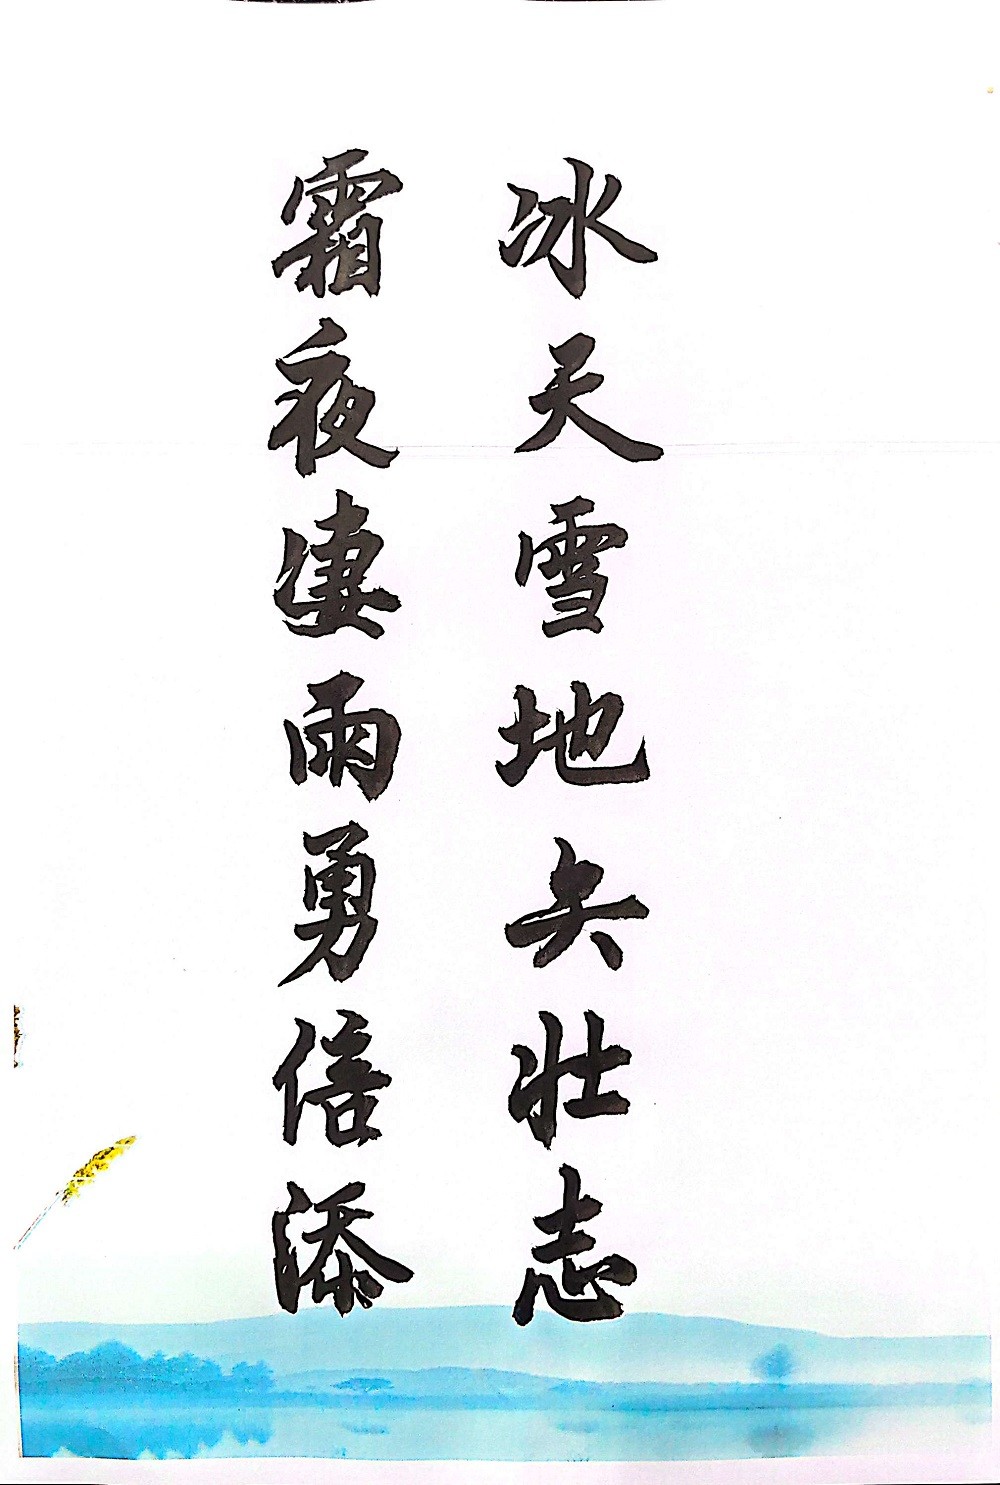 冰天雪地矢壯志
霜夜凄雨勇倍添